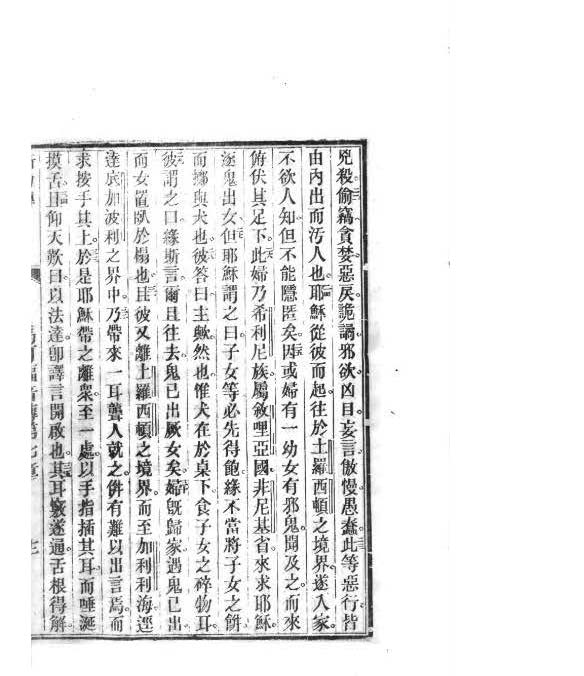 兇殺偷竊貪婪惡戾詭譎邪欲凶目妄言傲慢愚蠢此等惡行皆
由內出而汚人也耶穌從彼而起往於土羅西頓之境界遂入家
不欲人知但不能隱匿矣因或婦有一幼女有邪鬼聞及之而來
俯伏其足下此婦乃希利尼族屬敘哩亞國非尼基省來求耶穌
逐鬼出女但耶穌謂之曰子女等必先得飽緣不當將子女之餅
而擲與犬也彼答曰主歟然也惟犬在於桌下食子女之碎物耳
彼謂之曰緣斯言爾且往去鬼已出厥女矣婦旣歸家遇鬼已出
而女置臥於榻也且彼又離土羅西頓之境界而至加利利海逕
達底加波利之界中乃帶來一耳聾人就之併有難以出言焉而
求按手其上於是耶穌帶之離衆至一處以手指插其耳而唾涎
摸舌且仰天歎曰以法達卽譯言開啟也其耳竅遂通舌根得解
馬可福音傳第七章